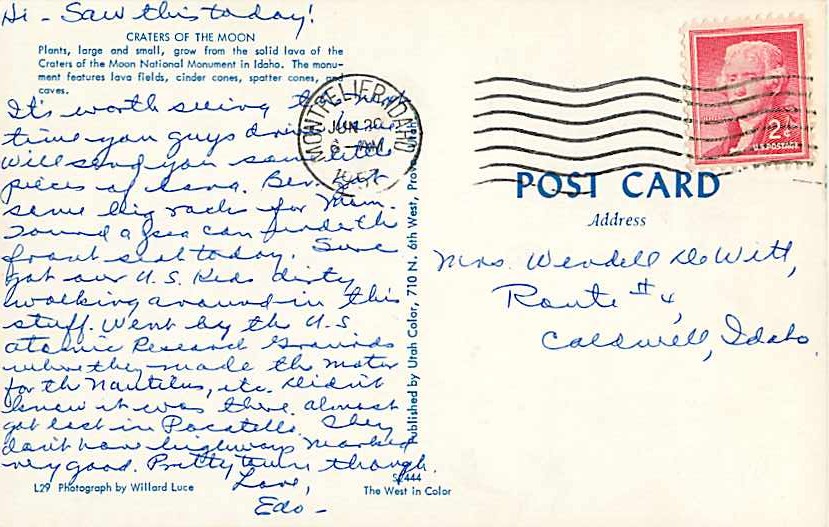 Hi - Saw this today!
CRATERS OF THE MOON
Plants, large and small, grow from the solid lava of the
Craters of the Moon National Monument in Idaho. The monu-
ment features lava fields, cinder cones, spatter cones, and
caves.
It's worth seeing the next
time you guys drive
Will send you some little
pieces of lava. Ben got
some big rocks for Mem.
Found a pea can under the
front seat today. Sure
got our U.S. Keds dirty
walking around in this
stuff. Went by the U.S.
Atomic Research Grounds
where they made the motor
for the Nautilus, etc. Didn't
know it was there. Almost
got lost in Pocatello. They
don't have highways marked
very good. Pretty town though.
Love,
Edo -
L29 Photograph by Willard Luce
The West in Color
Published by Utah Color, 710 N. 6th West, Provo, Utah
MONTPELIER, IDAHO
JUN 20
6 - AM
2¢
U.S. POSTAGE
POST CARD
Address
Mrs. Wendell DeWitt,
Route # 4,
Caldwell, Idaho.